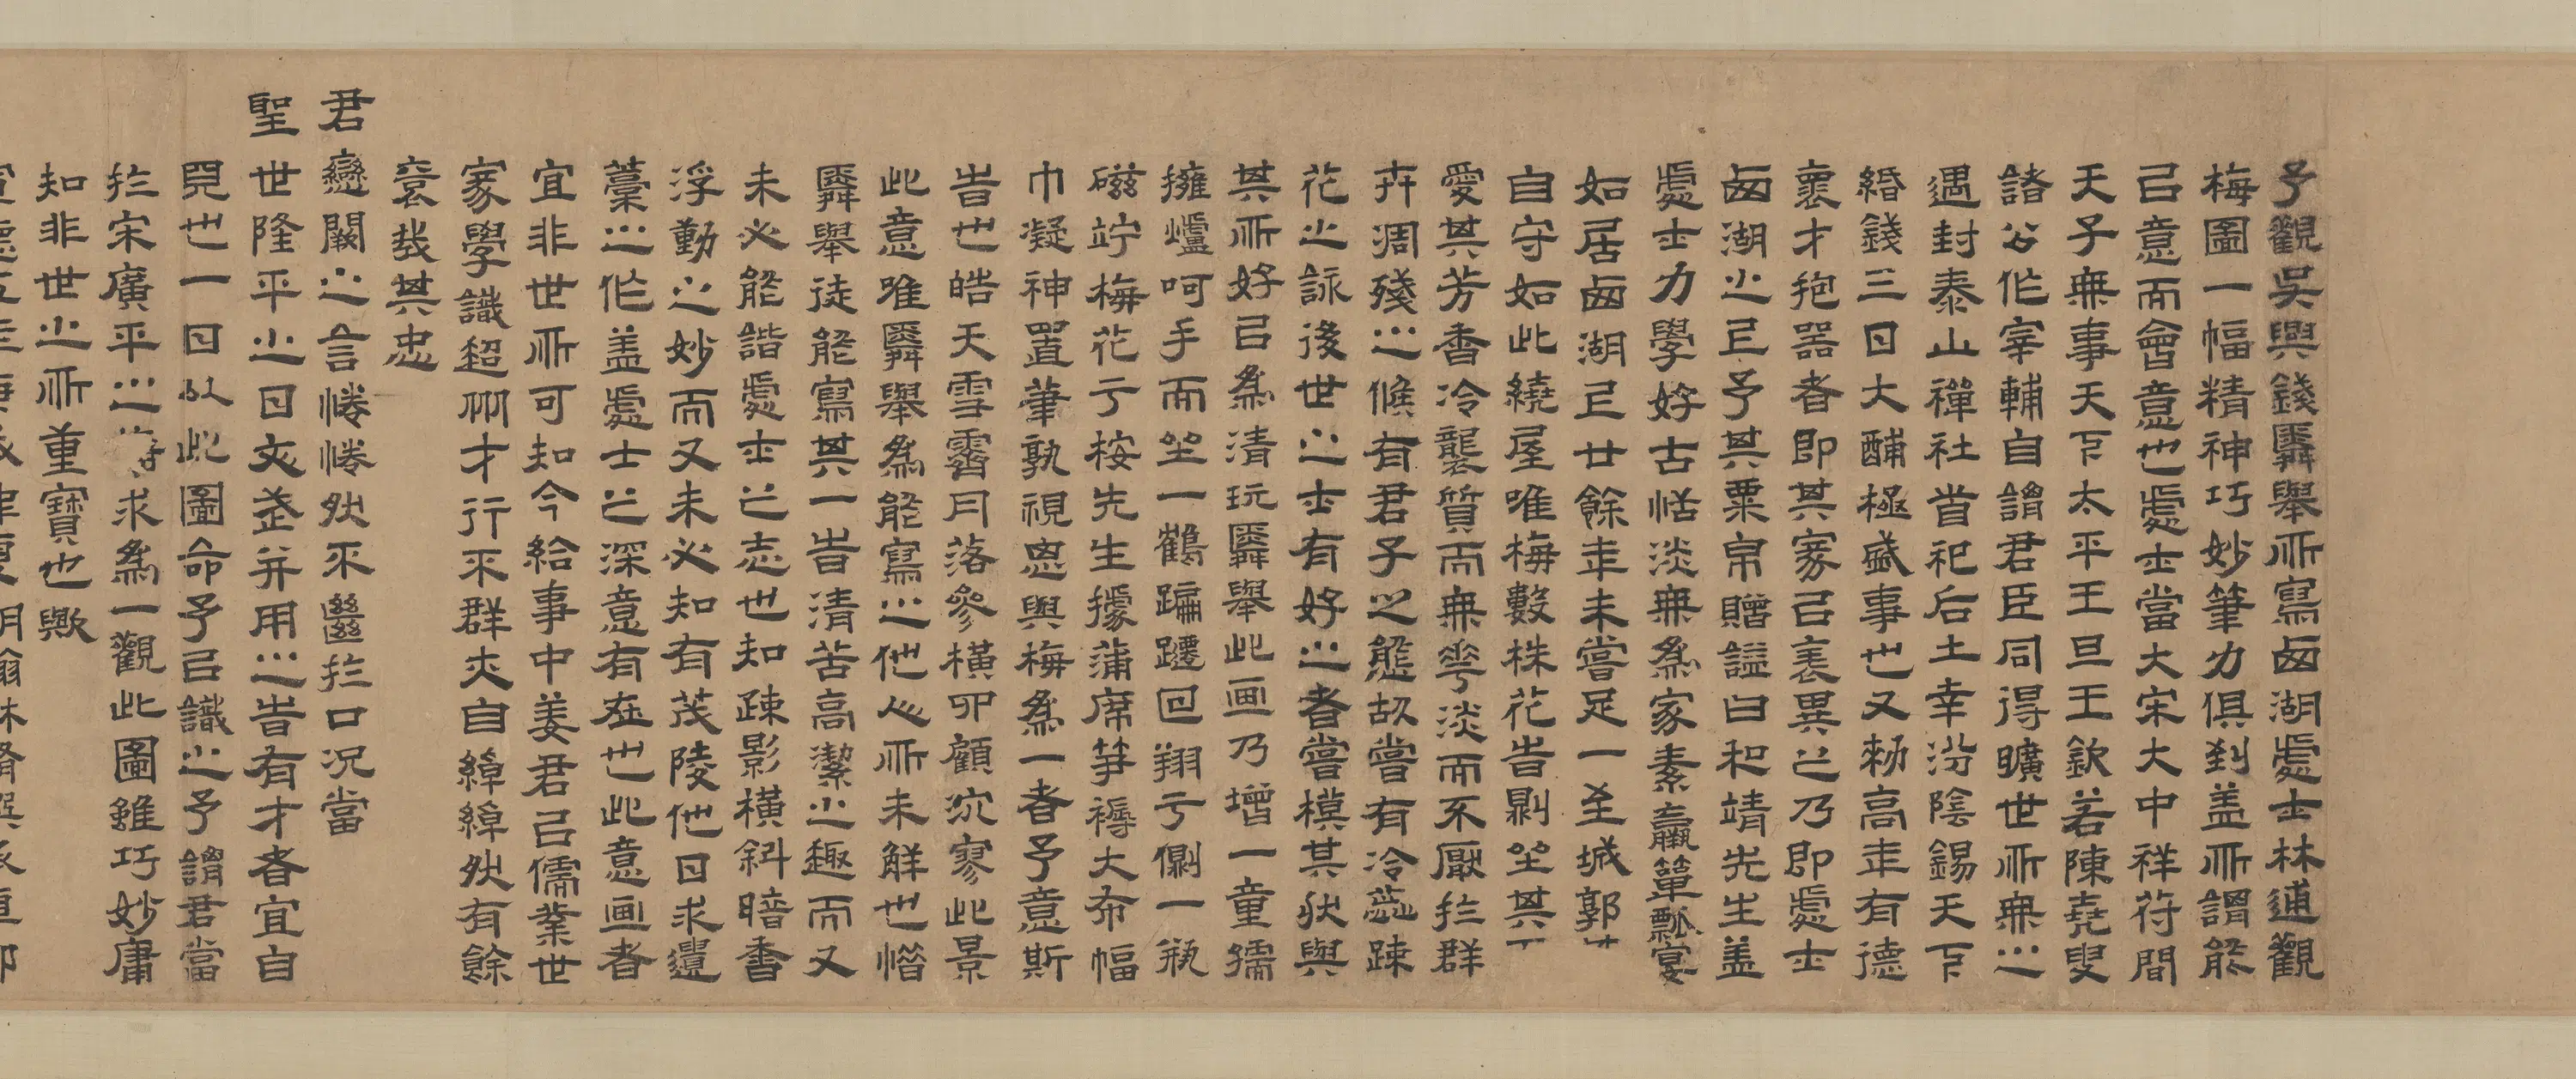 予觀吳興錢舜舉所寫西湖處士林逋觀
梅圖一幅精神巧妙筆力俱到盖所謂能
㠯意而會意也處士當大宋大中祥符間
天子無事天下太平王旦王欽若陳堯叟
諸公作宰輔自謂君臣同得曠世所無之
遇封泰山禪社首祀后土幸汾陰錫天下
緡錢三日大酺極盛事也又勑高年有德
裹才抱器者即其家㠯褒異之乃即處士
西湖之上予其粟帛贈諡曰和靖先生盖
處士力學好古恬淡無為家素羸簞瓢宴
如居西湖上廿餘年未嘗足一至城郭
自守如此繞屋唯梅數株花時剔坐其下
愛其芳香冷襲質而無華淡而不厭於群
卉凋殘之候有君子之態故嘗有冷蕊疎
花之詠後世之士有好之者嘗模其狀與
其所好㠯為清玩舜舉此画乃增一童孺
擁爐呵手而坐一鶴蹁躚回翔于側一瓶
磁竚梅花于桉先生據蒲席笋褥大布幅
巾凝神置筆孰視思與梅為一者予意斯
時也皓天雪霽月落參橫卯顧泬寥此景
此意唯舜舉為能寫之他人所未解也惜
舜舉徒能寫其一時清苦高潔之趣而又
未必能諧處士之志也知疎影橫斜暗香
浮動之妙而又未必知有茂陵他日求遺
藁之作盖處士之深意有在也此意画者
宜非世所可知今給事中姜君㠯儒業世
家學識超卓才行不群夫自綽綽然有餘
裒哉其忠
君戀闕之言惓惓然不釁於口况當
聖世隆平之日文武并用之時有才者宜自
見也一日以此圖命予㠯識之予謂君當
於宋廣平之求為一觀此圖雖巧妙庸
知非世之所重寶也歟